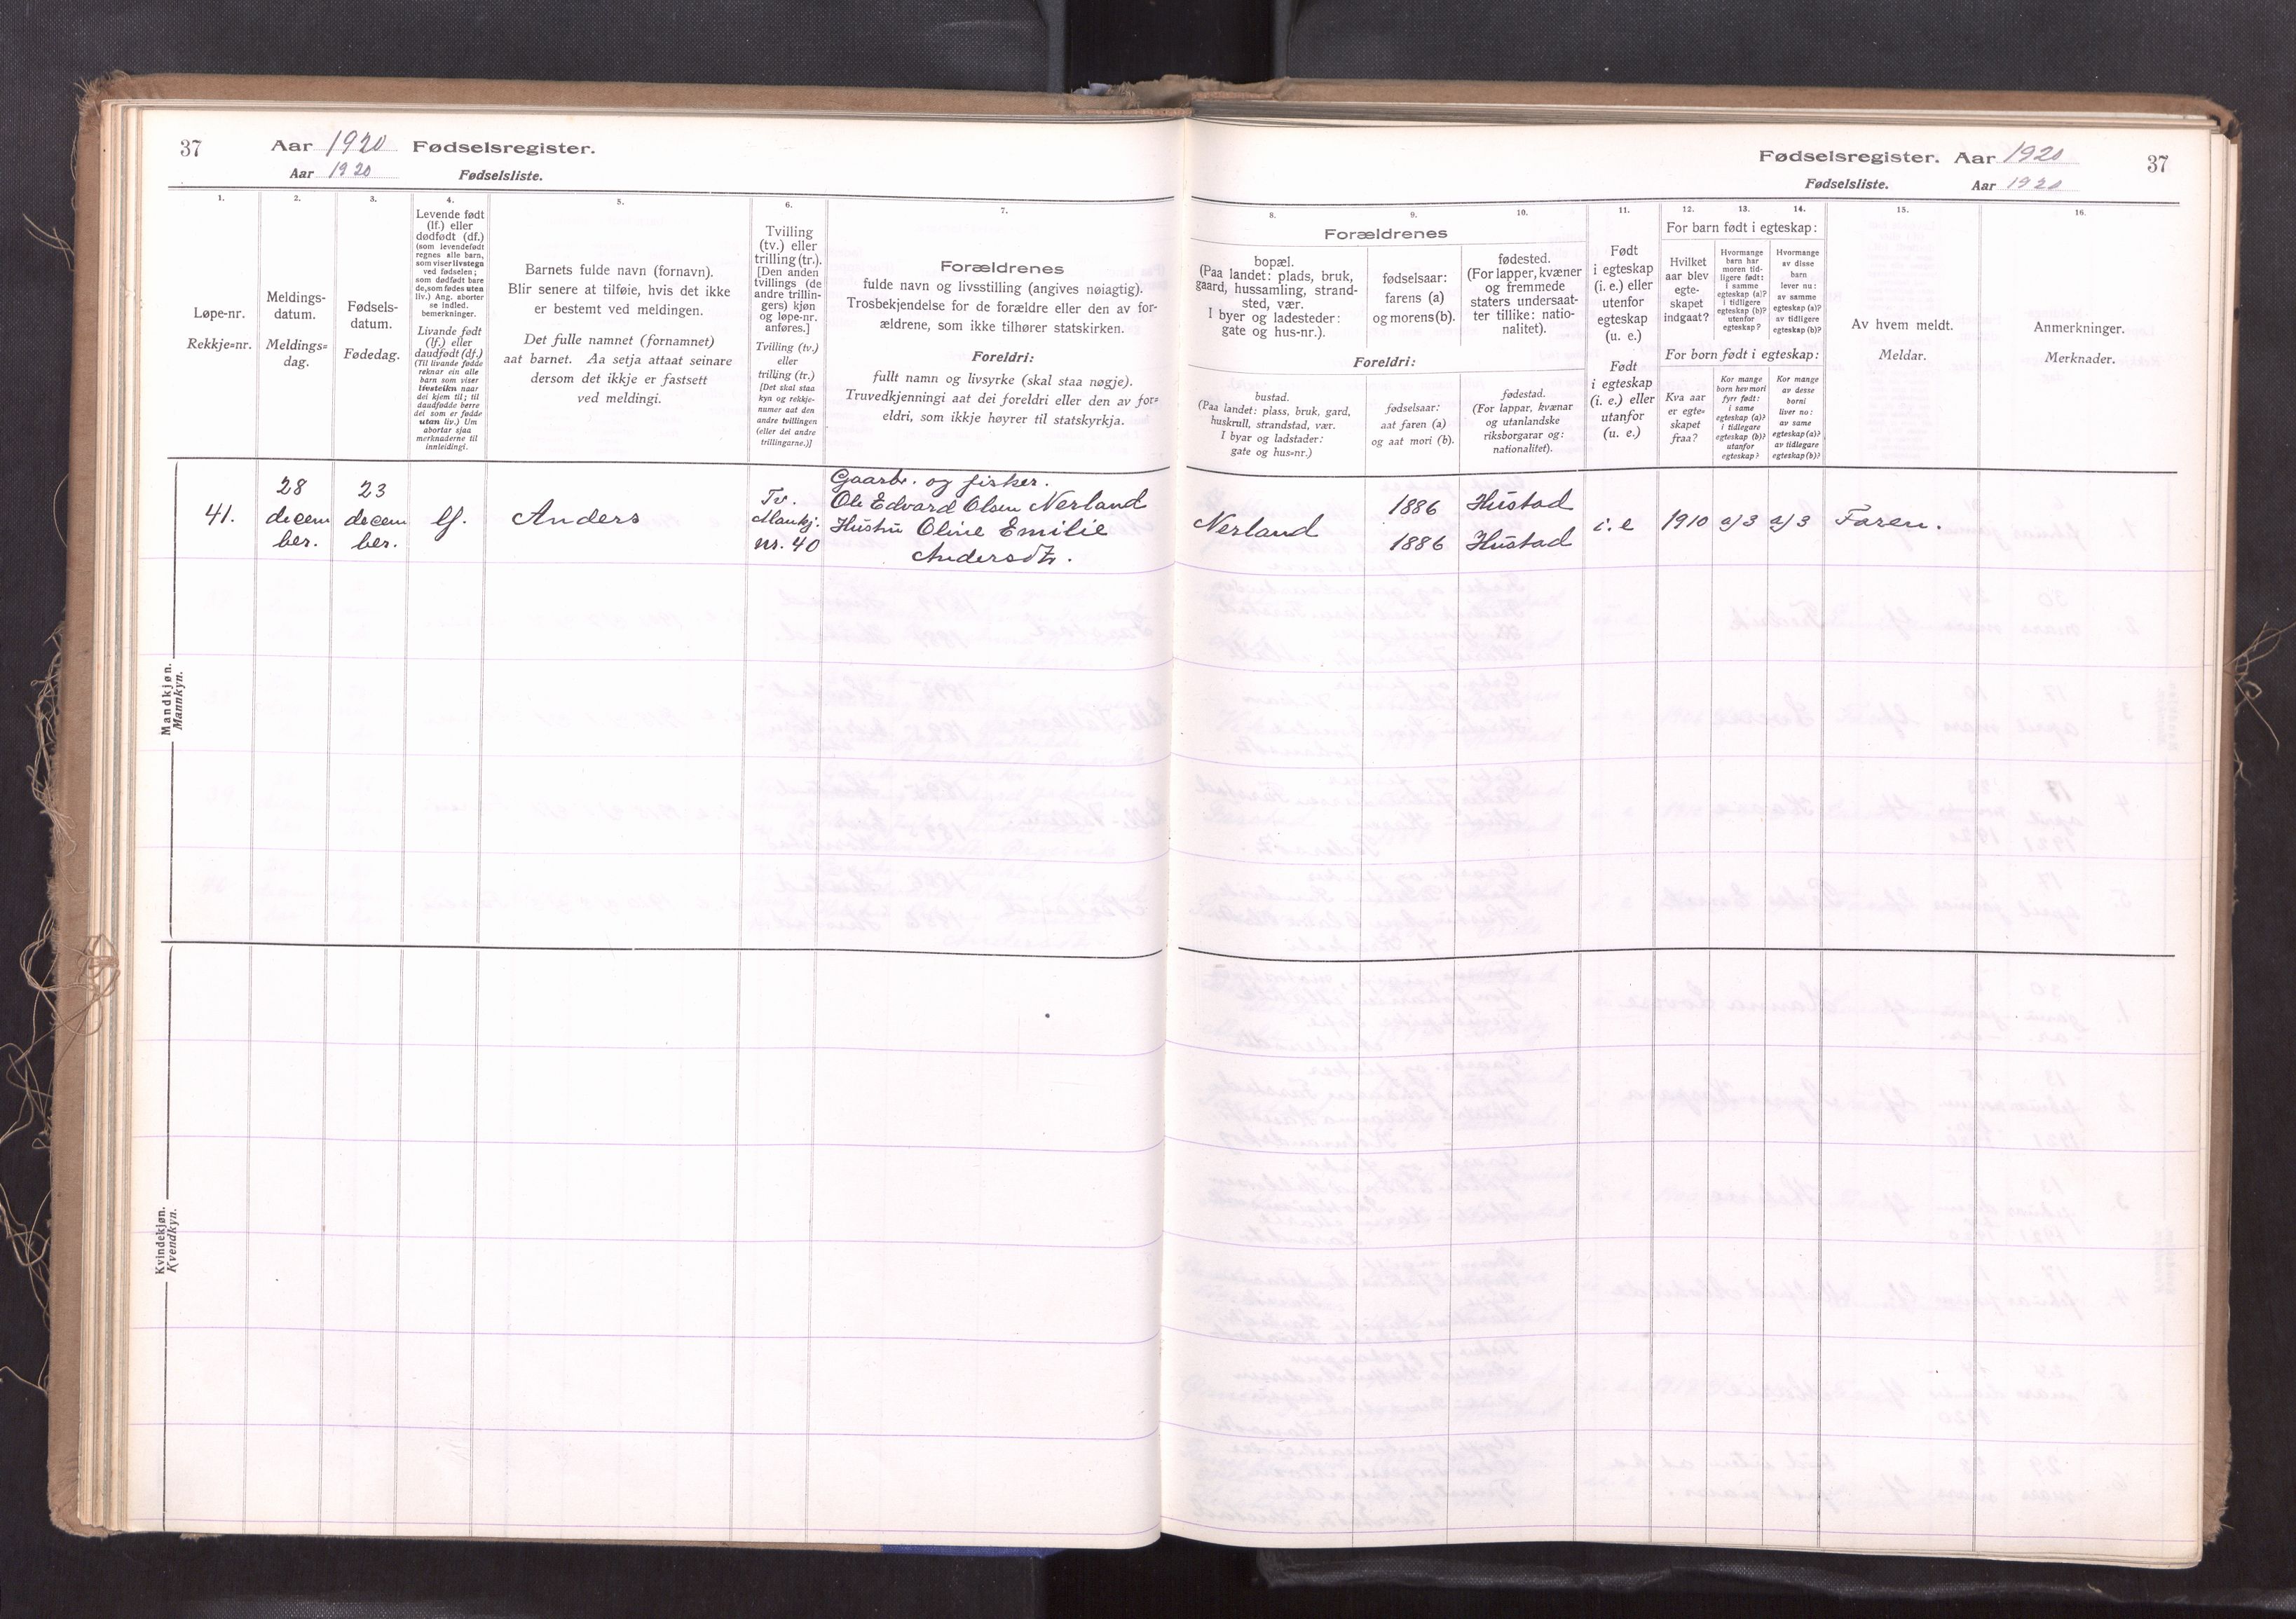 37
Aar 1920 Fødselsregister.
Aar 1920 Fødselsliste.
1.
Løpe-nr.
Rekkje=nr.
2.
Meldings-
datum.
Meldings=
dag.
3.
Fødsels-
datum.
Fødedag.
4.
Levende født
(lf.) eller
dødfødt (df.)
(som levendefødt
regnes alle barn,
som viser livstegn
ved fødselen;
som dødfødt bare
de, som fødes uten
liv.) Ang. aborter
se indled.
bemerkninger.
Livande født
(lf.) eller
daudfødt (df.)
(Til livande fødde
reknar ein alle
barn som viser
livsteikn naar
dei kjem til; til
daudfødde berre
dei som er fødde
utan liv.) Um
abortar sjaa
merknaderne til
innleidingi.
5.
Barnets fulde navn (fornavn).
Blir senere at tilføie, hvis det ikke
er bestemt ved meldingen.
Det fulle namnet (fornamnet)
aat barnet. Aa setja attaat seinare
dersom det ikkje er fastsett
ved meldingi.
6.
Tvilling
(tv.) eller
trilling (tr.).
[Den anden
tvillings (de
andre trillin-
gers) kjøn
og løpe-nr.
anføres.]
Tvilling (tv.)
eller
trilling (tr.)
[Det skal staa
kyn og rekkje-
numer aat den
andre tvillingen
(eller dei andre
trillingarne.)]
7.
Forældrenes
fulde navn og livsstilling (angives nøiagtig).
Trosbekjendelse for de forældre eller den av for-
ældrene, som ikke tilhører statskirken.
Foreldri:
fullt namn og livsyrke (skal staa nøgje).
Truvedkjenningi aat dei foreldri eller den av for=
eldri, som ikkje høyrer til statskyrkja.
Mandkjøn.
Mannkyn.
41.
28
decem
ber.
23
decem
ber.
lf.
Anders
Tv.
Mankj.
nr. 40
Gaarbr. og fisker.
Ole Edvard Olsen Nerland
Hustru Oline Emilie
Andersdtr.
Kvindekjøn.
Kvendkyn.
Fødselsregister. Aar 1920
37
Fødselsliste. Aar 1920
8.
Forældrenes
bopæl.
(Paa landet: plads, bruk,
gaard, hussamling, strand-
sted, vær.
I byer og ladesteder:
gate og hus-nr.).
Foreldri:
bustad.
(Paa landet: plass, bruk, gard,
huskrull, strandstad, vær.
I byar og ladstader:
gate og hus=nr.)
9.
fødselsaar:
farens (a)
og morens (b).
fødselsaar:
aat faren (a)
og aat mori (b).
10.
fødested.
(For lapper, kvæner
og fremmede
staters undersaat-
ter tillike: natio-
nalitet).
fødestad.
(For lappar, kvænar
og utanlandske
riksborgarar og:
nationalitet).
11.
Født
i egteskap
(i. e.) eller
utenfor
egteskap
(u. e.)
Født
i egteskap
(i. e.) eller
utanfor
(u. e.)
12.
For barn født i egteskap:
Hvilket
aar blev
egte-
skapet
indgaat?
For born født i egteskap:
Kva aar
er egte=
skapet
fraa?
13.
Hvormange
barn har
moren tid-
ligere født:
i samme
egteskap (a)?
i tidligere
egteskap (b)?
utenfor
egteskap?
Kor mange
born hev mori
fyrr født:
i same
egteskap (a)?
i tidlegare
egteskap (b)?
utanfor
egteskap?
14.
Hvormange
av disse
barn
lever nu:
av samme
egteskap (a)?
av tidligere
egteskap (b)?
Kor mange
av desse
borni
liver no:
av same
egteskap (a)?
av tidlegare
egteskap (b)?
15.
Av hvem meldt.
Meldar.
16.
Anmerkninger.
Merknader.
Nerland
1886
1886
Hustad
Hustad
i. e
1910
a/3
a/3
Faren.